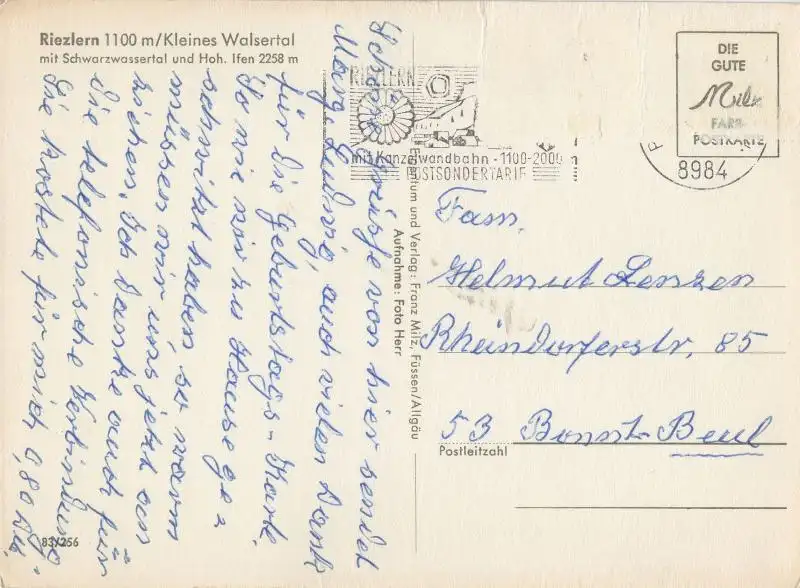 Riezlern 1100 m/Kleines Walsertal
mit Schwarzwassertal und Hoh. Ifen 2258 m
Schöne Grüße von hier sendet
Marg. Ludwig, auch vielen Dank
für die Geburtstags-Karte.
So wie wir zu Hause ge=
schwitzt haben, so warm
müssen wir uns jetzt an
ziehen. Ich danke auch für
die telefonische Verbindung
die kostete für mich 9,80 DM.
83/256
Eigentum und Verlag: Franz Milz, Füssen/Allgäu
Aufnahme: Foto Herr
RIEZLERN
mit Kanzelwandbahn - 1100-2000 m
POSTSONDERTARIF
DIE
GUTE
Milz
FARB-
POSTKARTE
8984
Fam.
Helmut Lenzen
Rheindorferstr. 85
53 Bonn-Beul
Postleitzahl